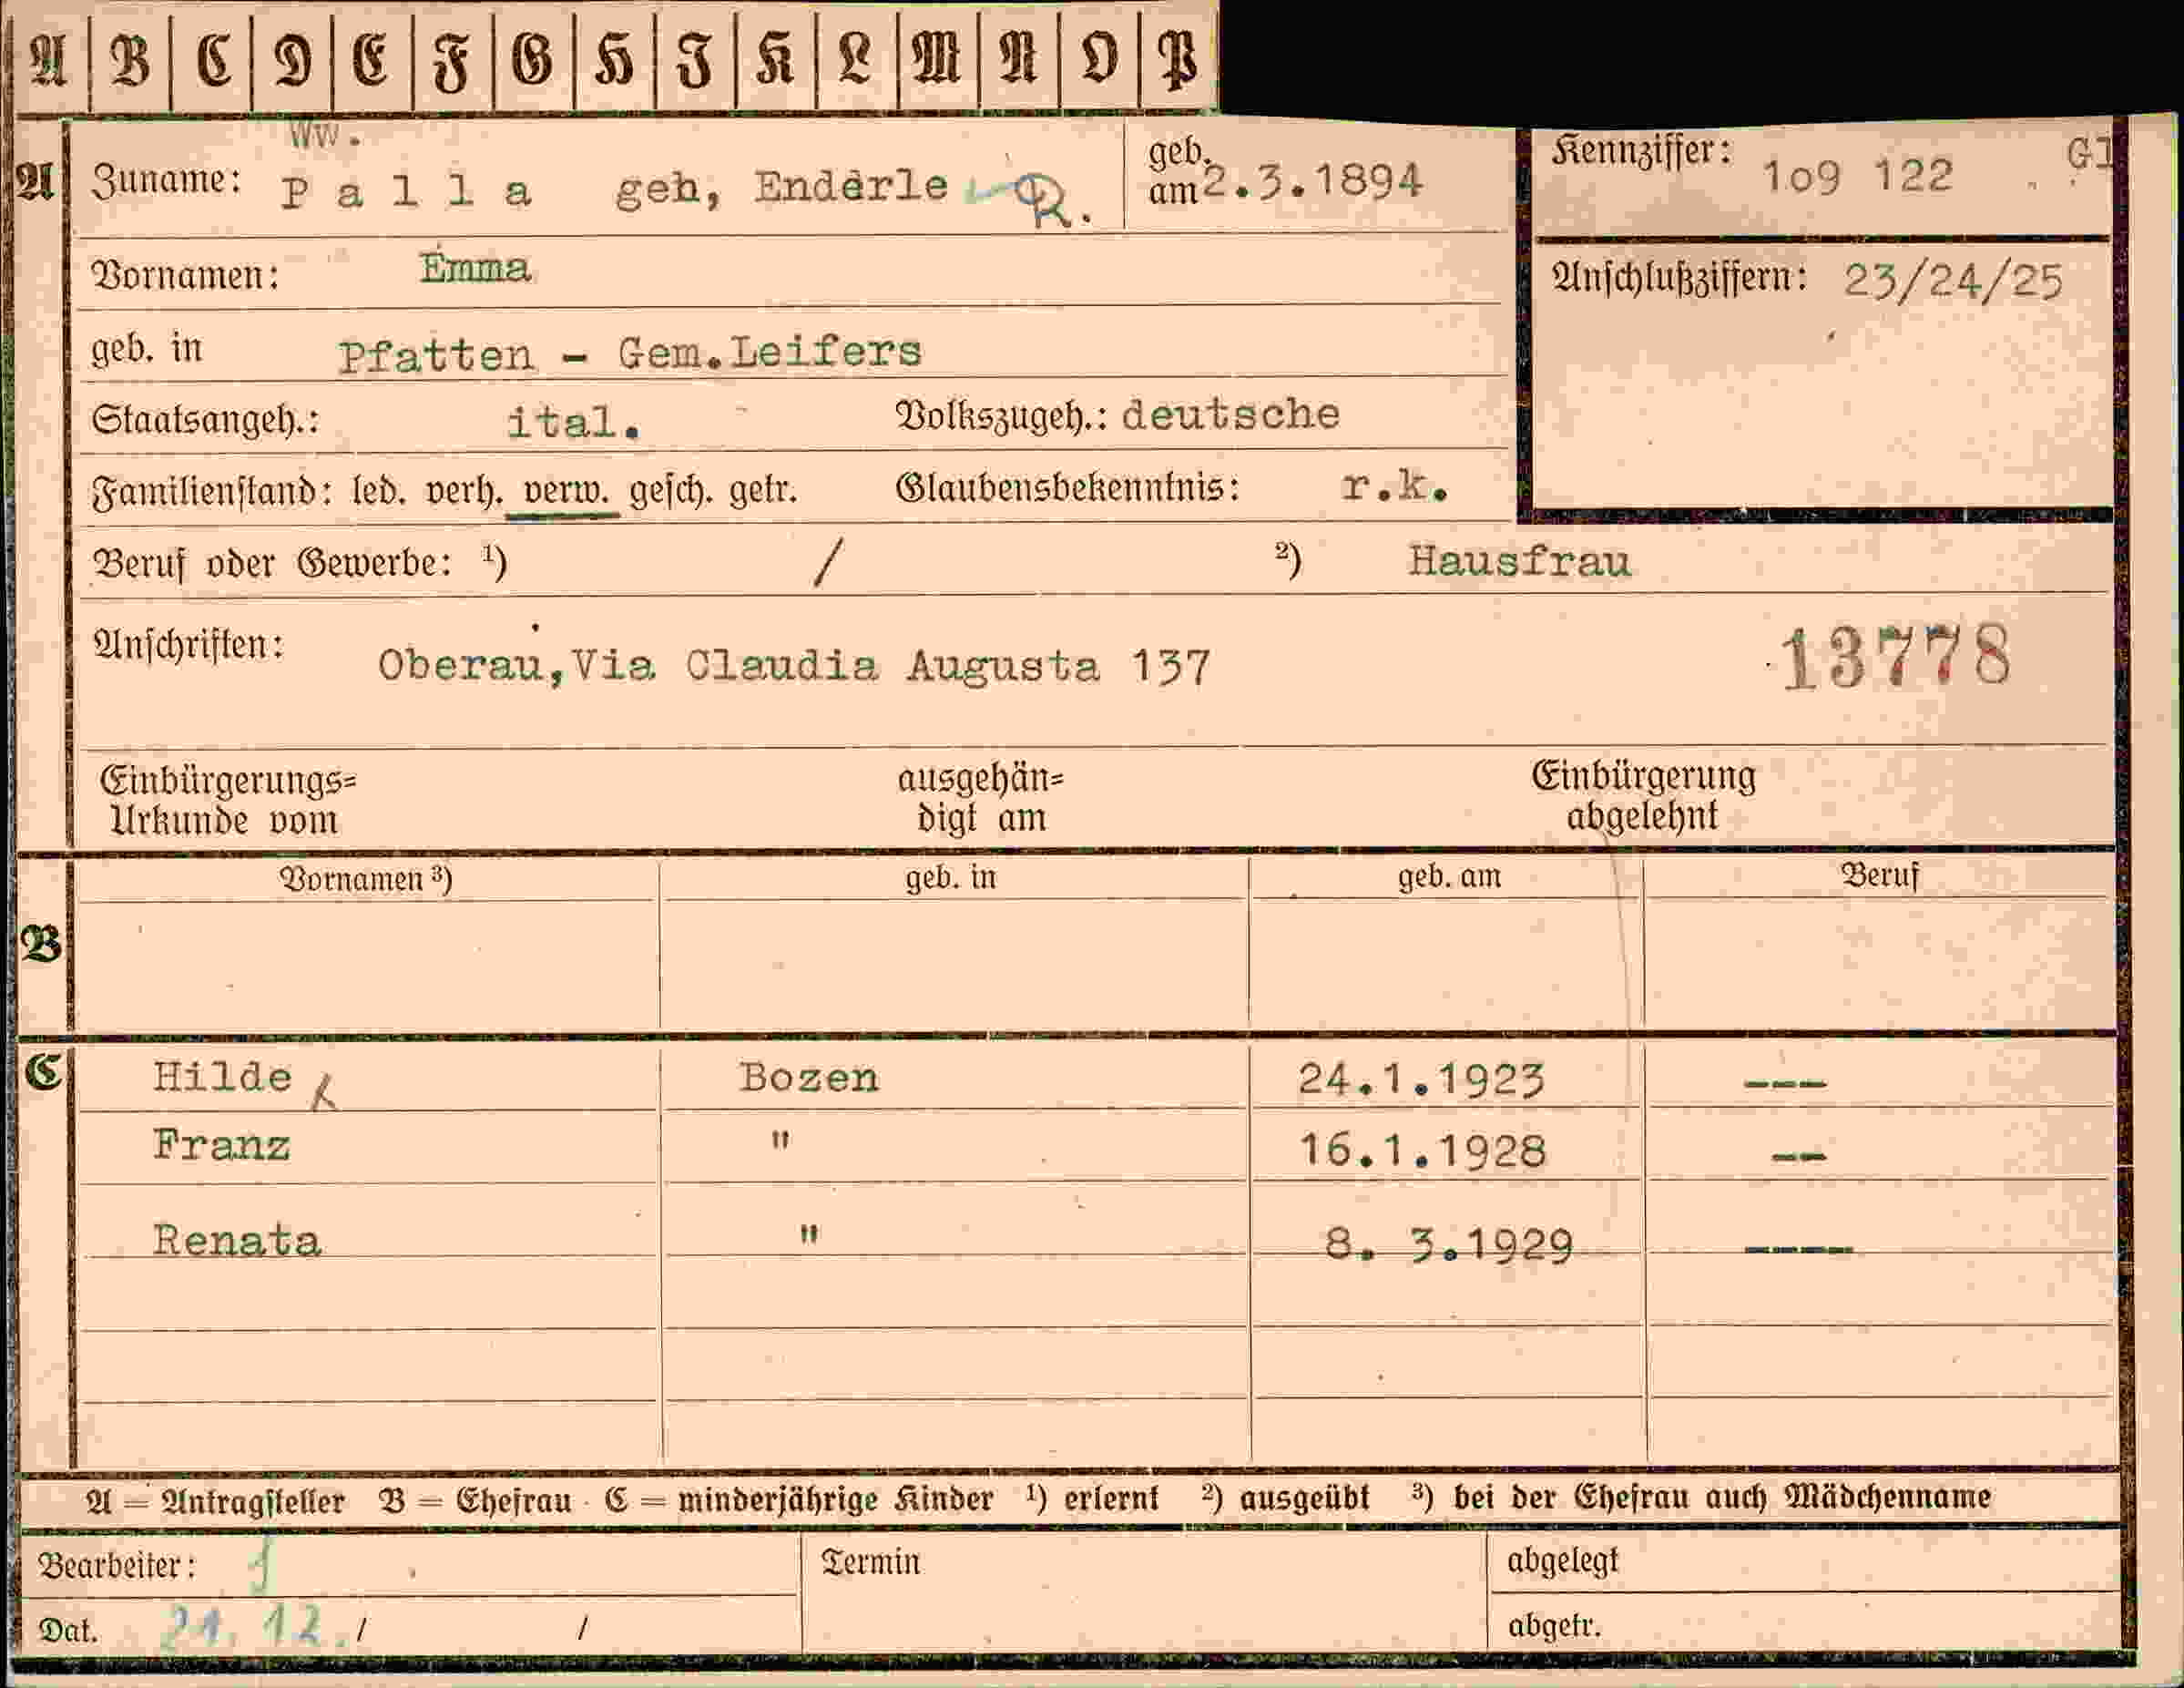 A B C D E F G H I K L M N O P
Ww.
A Zuname: P a l l a geh, Enderle R. geb. am 2.3.1894
Kennziffer: 1o9 122 Gl
Vornamen: Emma
Anschlußziffern: 23/24/25
geb. in Pfatten - Gem.Leifers
Staatsangeh.: ital. Volkszugeh.: deutsche
Familienstand: led. verh. verw. gesch. getr. Glaubensbekenntnis: r.k.
Beruf oder Gewerbe: ¹) / ²) Hausfrau
Anschriften: Oberau,Via Claudia Augusta 137 13778
Einbürgerungs= ausgehän= Einbürgerung
Urkunde vom digt am abgelehnt
Vornamen ³) geb. in geb. am Beruf
B
C Hilde Bozen 24.1.1923 ---
Franz " 16.1.1928 --
Renata " 8. 3.1929 ----
A = Antragsteller B = Ehefrau C = minderjährige Kinder ¹) erlernt ²) ausgeübt ³) bei der Ehefrau auch Mädchenname
Bearbeiter: Termin abgelegt
Dat. 21. 12. / / abgetr.